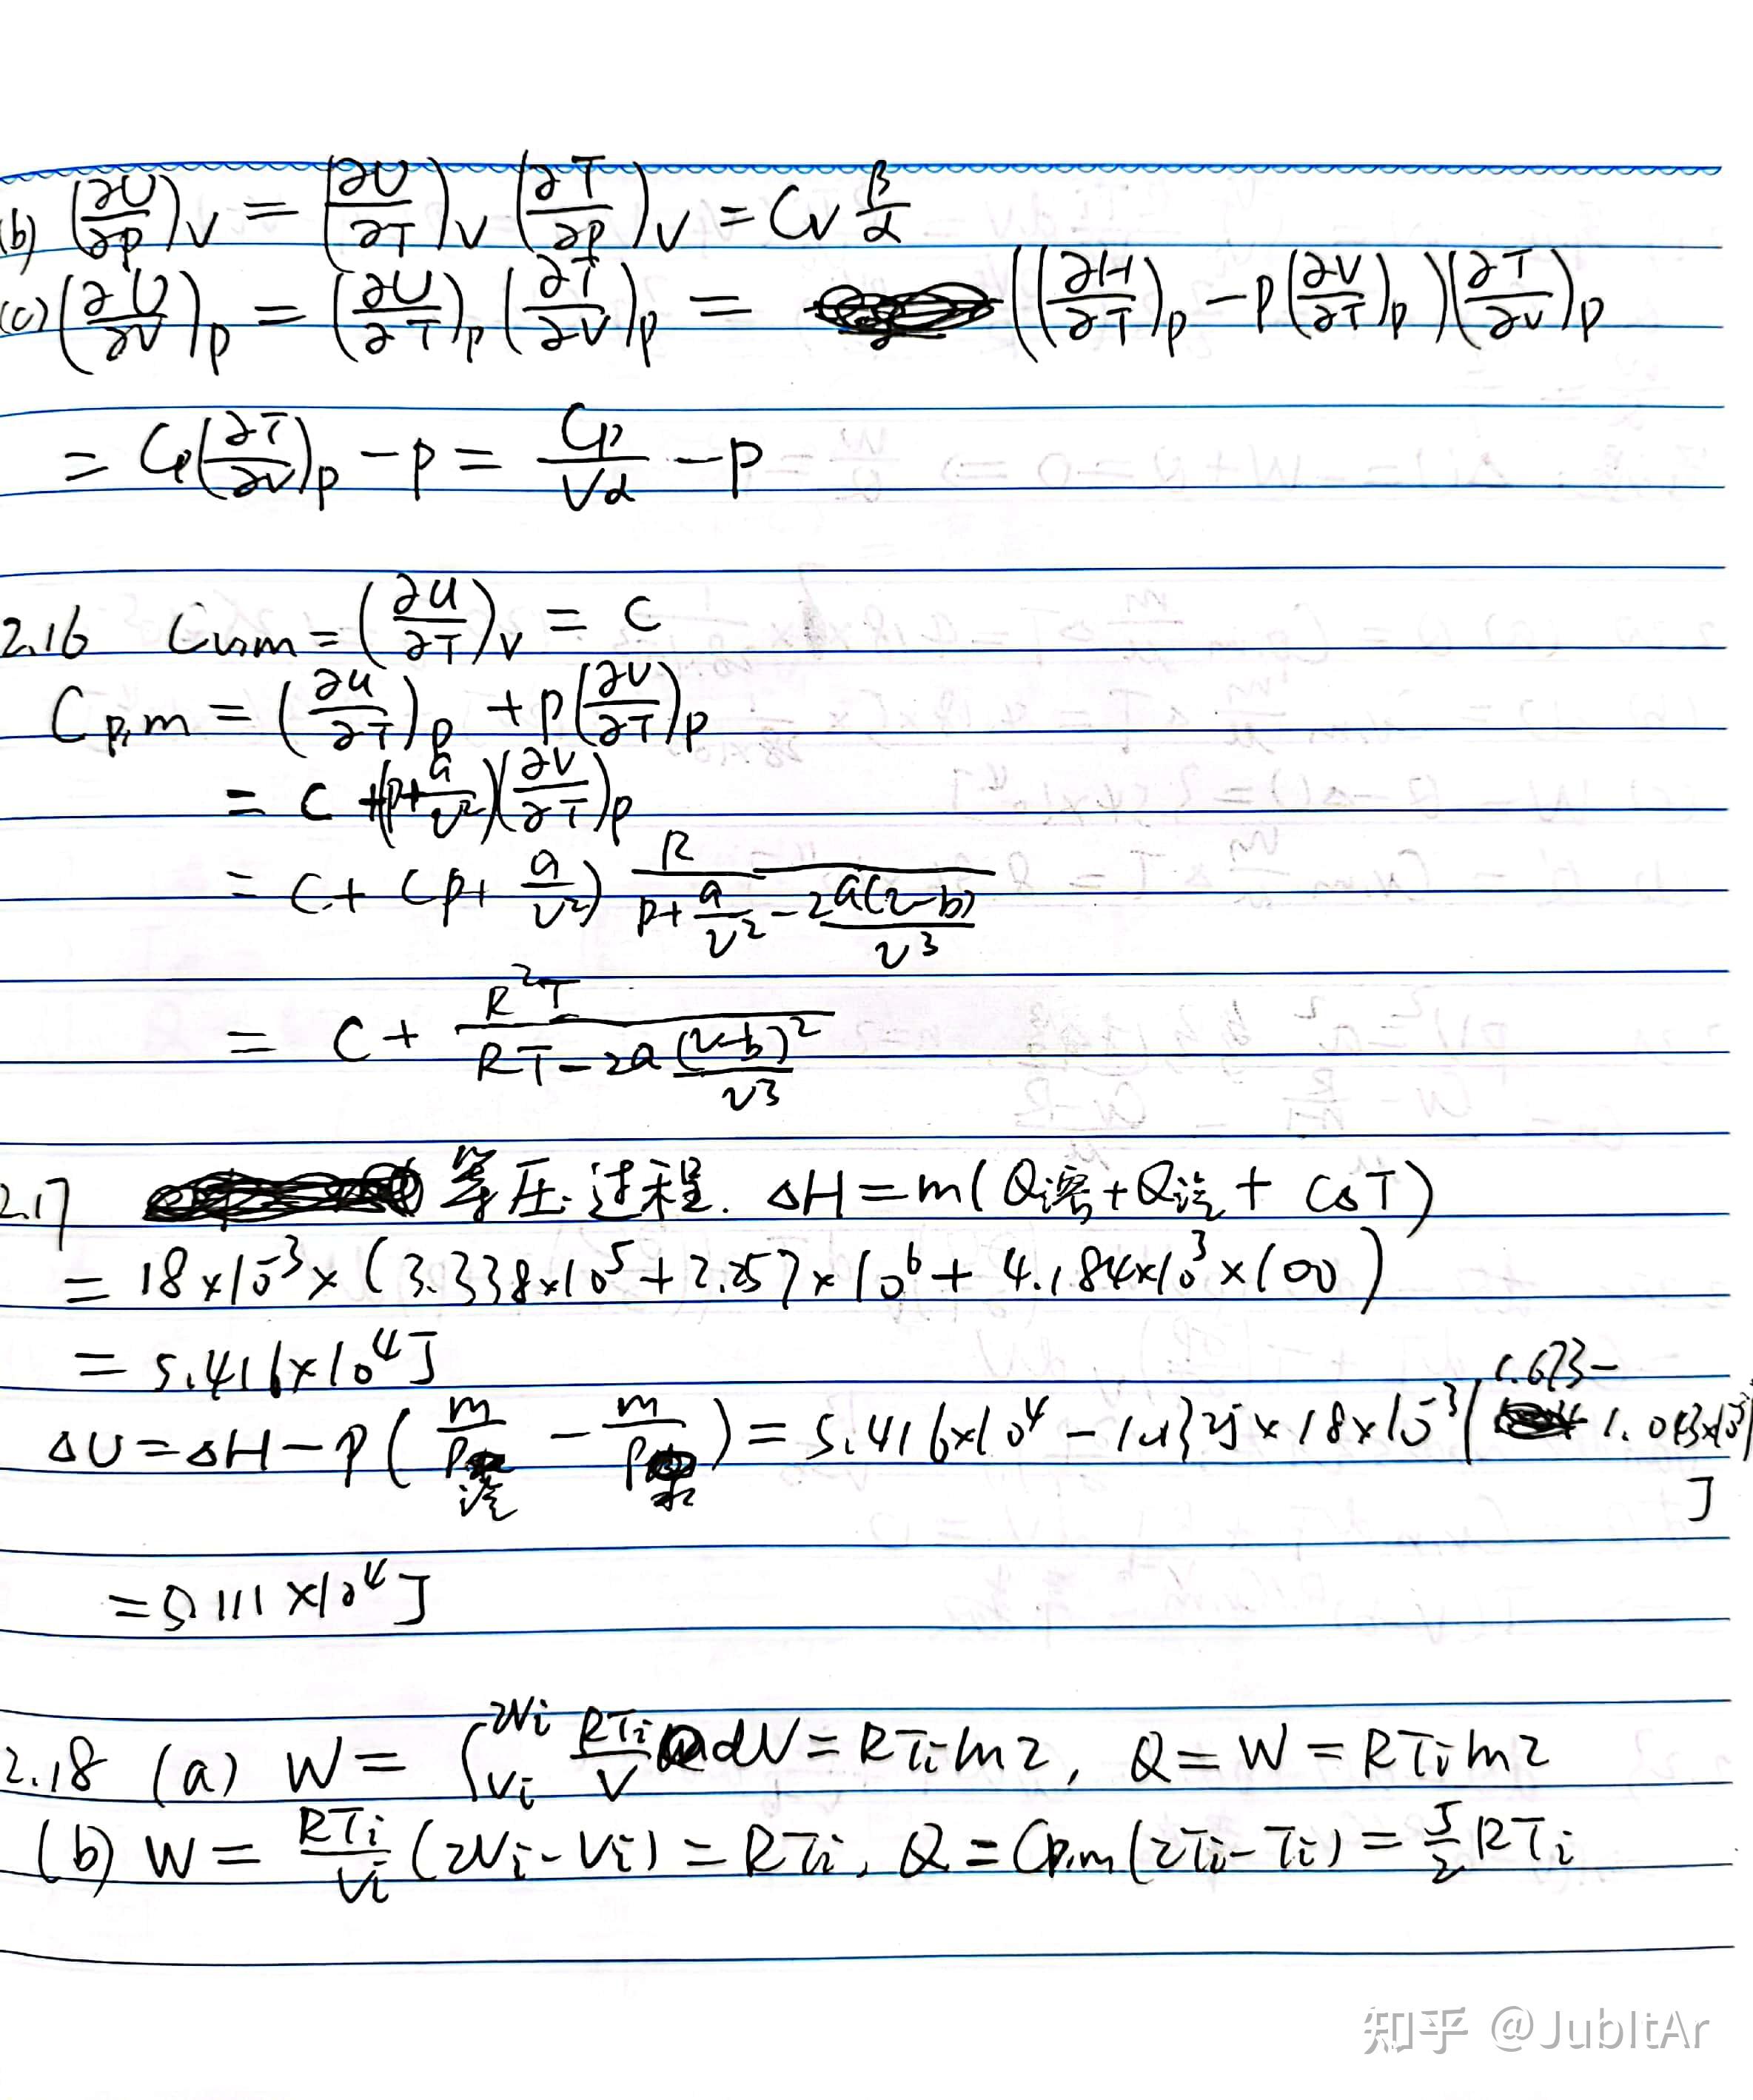 (b) (∂U/∂p)_V = (∂U/∂T)_V (∂T/∂p)_V = C_V β/α
(c) (∂U/∂V)_p = (∂U/∂T)_p (∂T/∂V)_p = ((∂H/∂T)_p - p(∂V/∂T)_p)(∂T/∂V)_p
= C_p(∂T/∂V)_p - p = C_p/(Vα) - p
2.16 C_{v,m} = (∂u/∂T)_v = C
C_{p,m} = (∂u/∂T)_p + p(∂v/∂T)_p
= C + (p + a/v²)(∂v/∂T)_p
= C + (p + a/v²) R/(p + a/v² - 2a(v-b)/v³)
= C + R²T/(RT - 2a(v-b)²/v³)
2.17 等压过程. ΔH = m(Q溶 + Q汽 + CΔT)
= 18×10⁻³×(3.338×10⁵ + 2.257×10⁶ + 4.184×10³×100)
= 5.416×10⁴J
ΔU = ΔH - p(m/ρ汽 - m/ρ水) = 5.416×10⁴ - 101325×18×10⁻³(1.673 - 1.043×10⁻³) J
= 5.111×10⁴J
2.18 (a) W = ∫_{Vi}^{2Vi} RTi/V dV = RTi ln2, Q = W = RTi ln2
(b) W = RTi/Vi (2Vi - Vi) = RTi, Q = C_{p,m}(2Ti - Ti) = 5/2 RTi
知乎 @JubItAr